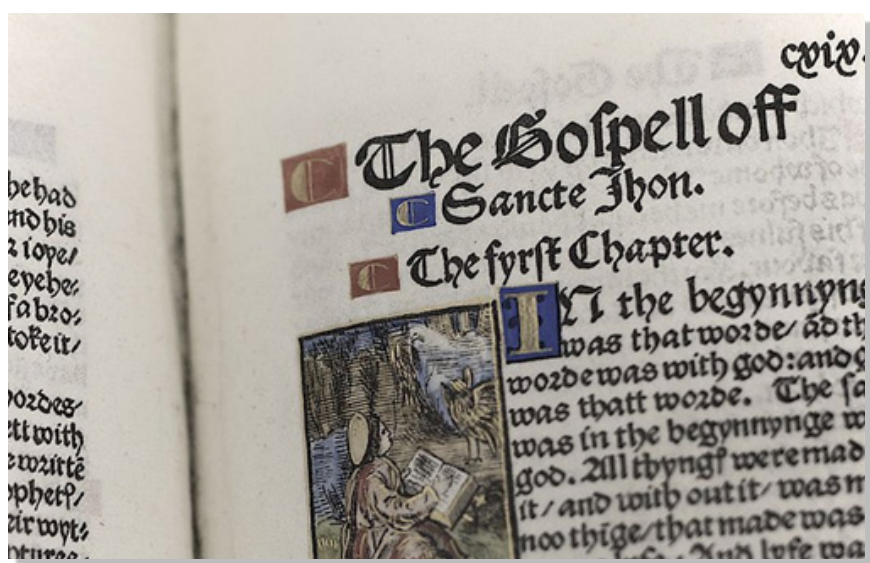 he had
and his
iope/
f a bro:
toke it/
wordes
ett with
writtē
cxix.
The Gospell off
Sancte Jhon.
The fyrst Chapter.
IN the begynnyng
was that worde/ ād th
worde was with god: and g
was thatt worde. The sa
was in the begynnynge w
god. All thyngꝭ were mad
it/ and with out it/ was m
noo thīge/ that made was
And lyfe wa